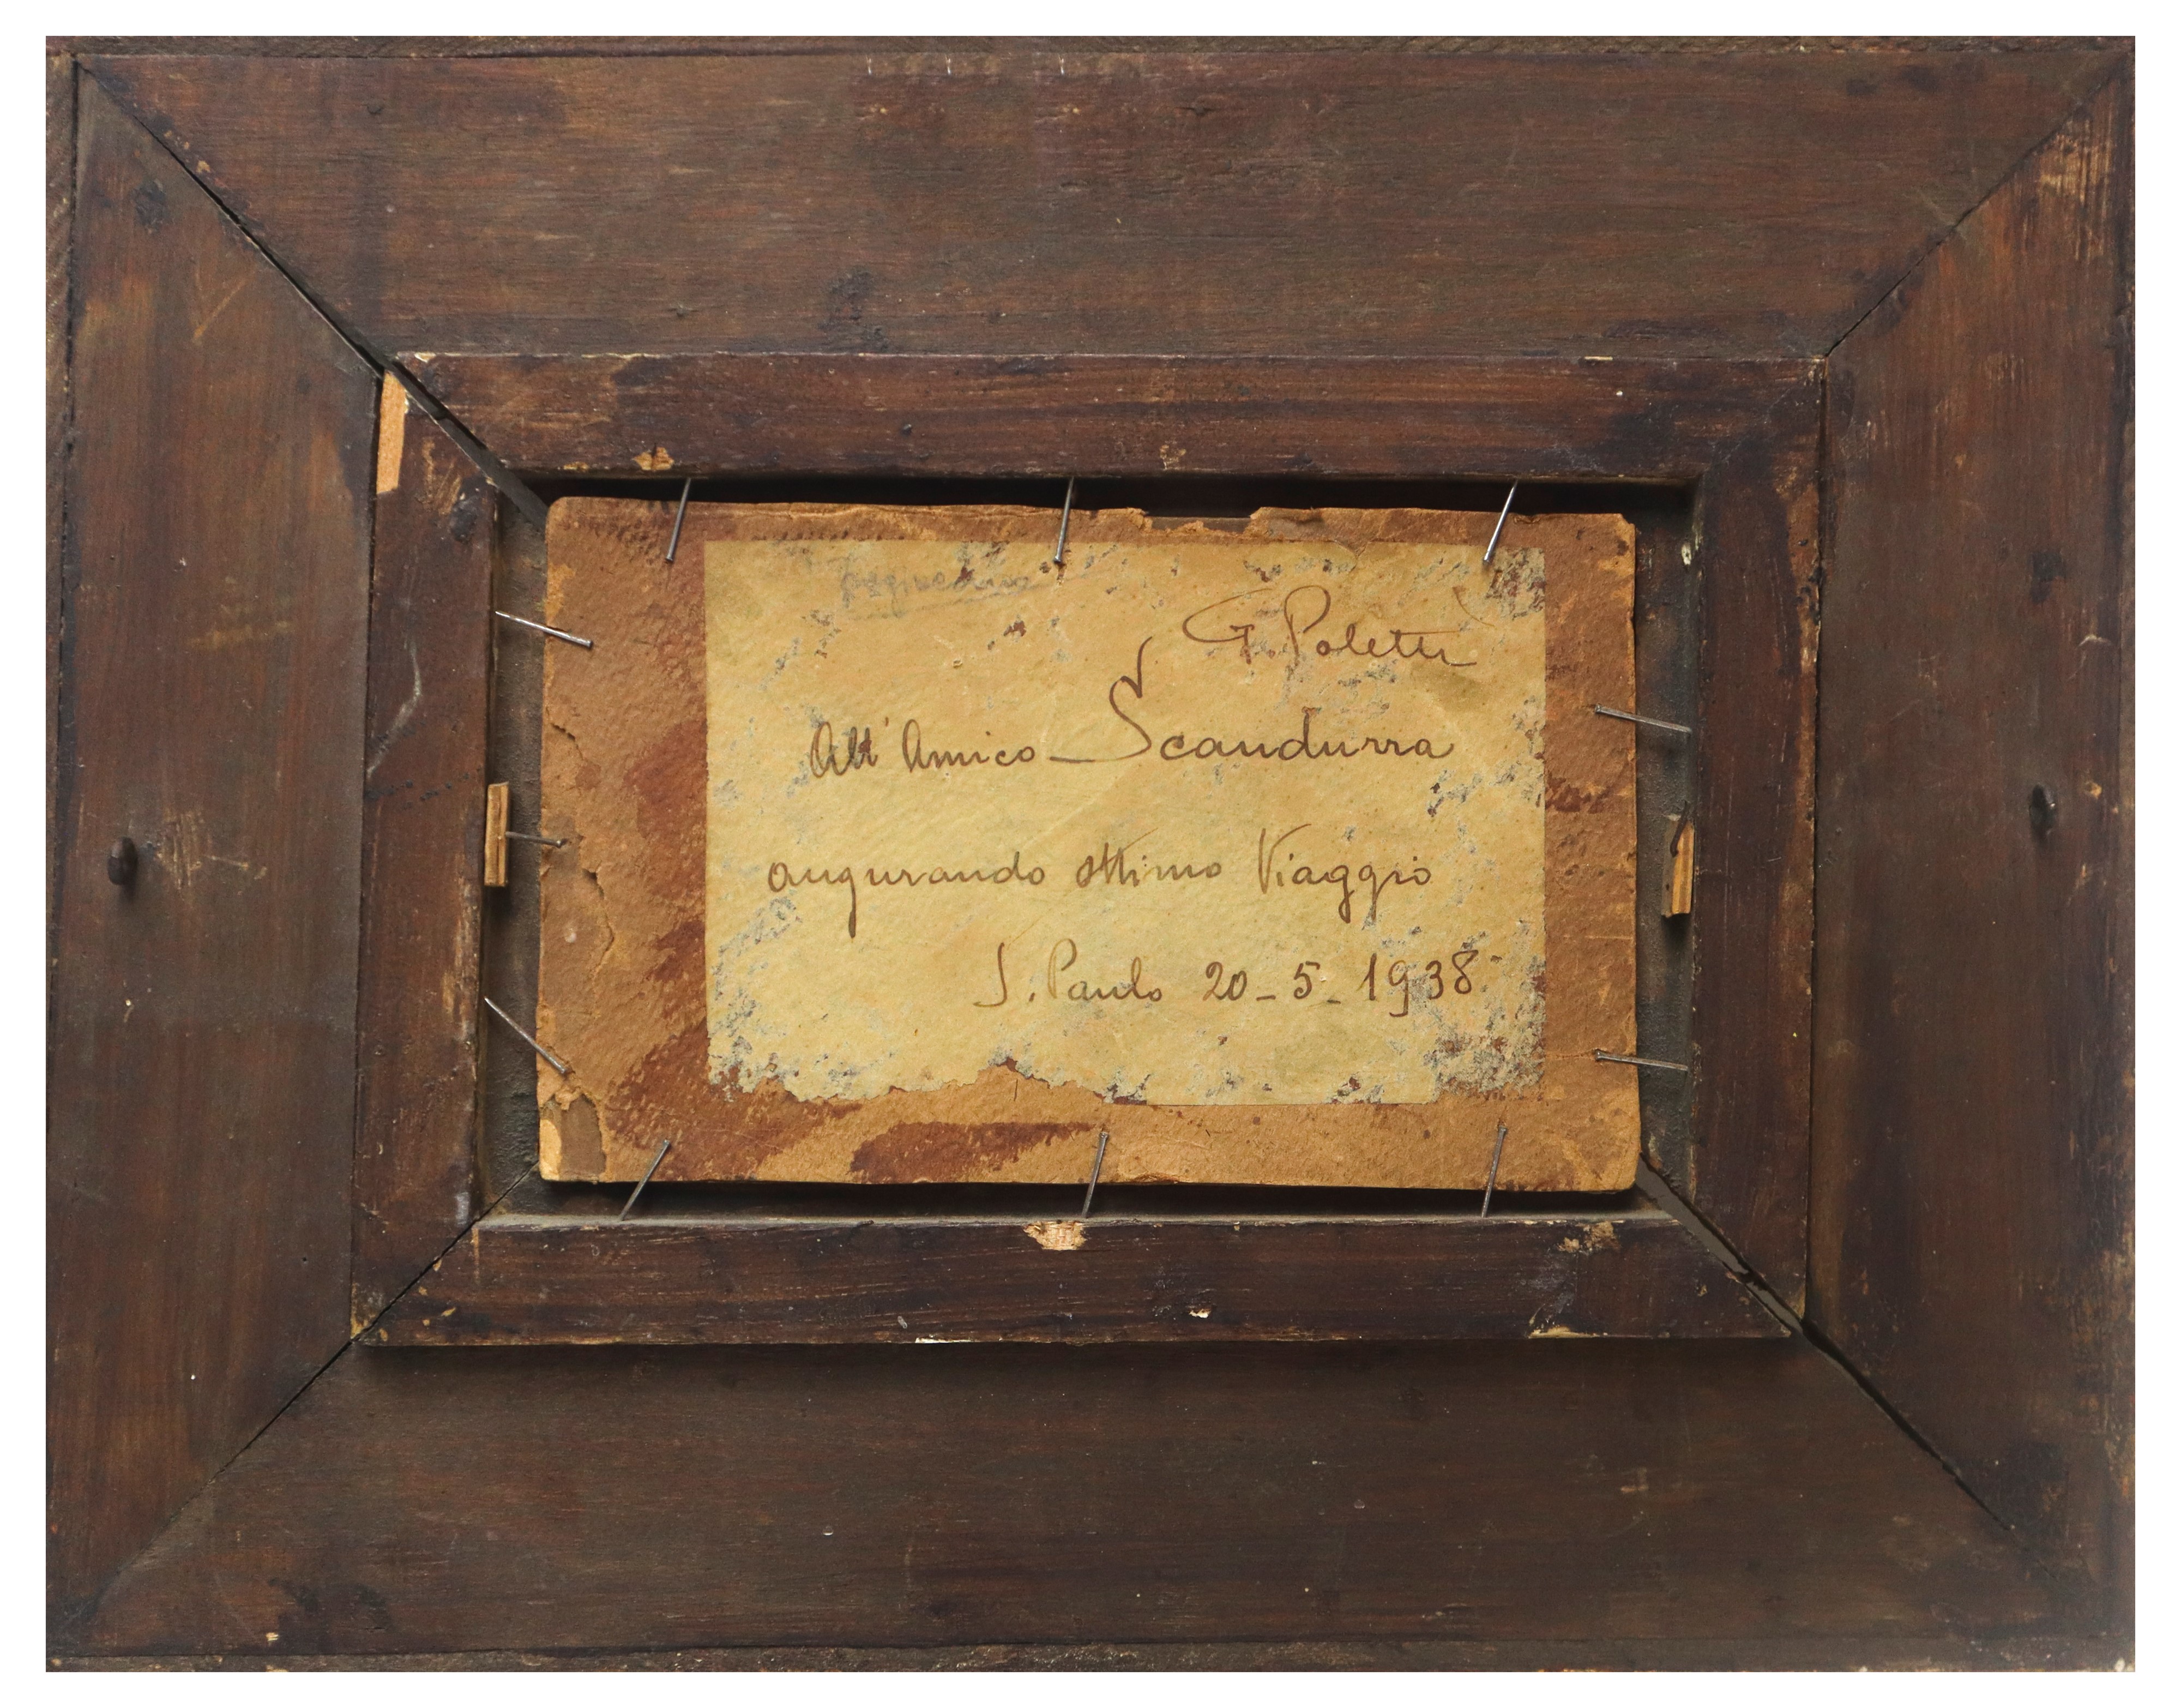 G. Poletti
All' Amico Scandurra
augurando ottimo Viaggio
S. Paulo 20-5-1938